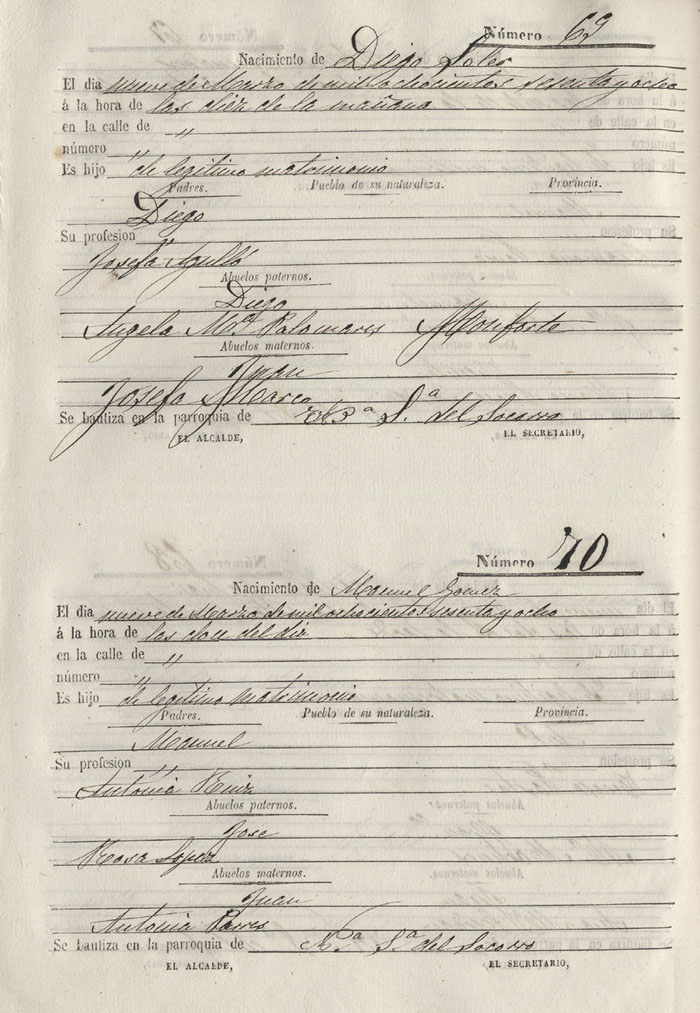 Número 69
Nacimiento de Diego Soler
El dia nueve de Marzo de mil ochocientos sesenta y ocho
á la hora de las diez de la mañana
en la calle de "
número "
Es hijo de legitimo matrimonio
Padres. Pueblo de su naturaleza. Provincia.
Diego
Su profesion "
Josefa Agulló
Abuelos paternos.
Diego
Angela Mª Palomares Monforte
Abuelos maternos.
Juan
Josefa Marco
Se bautiza en la parroquia de Nª Sª del Socorro
EL ALCALDE, EL SECRETARIO,
Número 70
Nacimiento de Manuel Gomez
El dia nueve de Marzo de mil ochocientos sesenta y ocho
á la hora de las doce del dia
en la calle de "
número "
Es hijo de legitimo matrimonio
Padres. Pueblo de su naturaleza. Provincia.
Manuel
Su profesion "
Antonia Ruiz
Abuelos paternos.
Jose
Rosa Lopez
Abuelos maternos.
Juan
Antonia Parres
Se bautiza en la parroquia de Nª Sª del Socorro
EL ALCALDE, EL SECRETARIO,